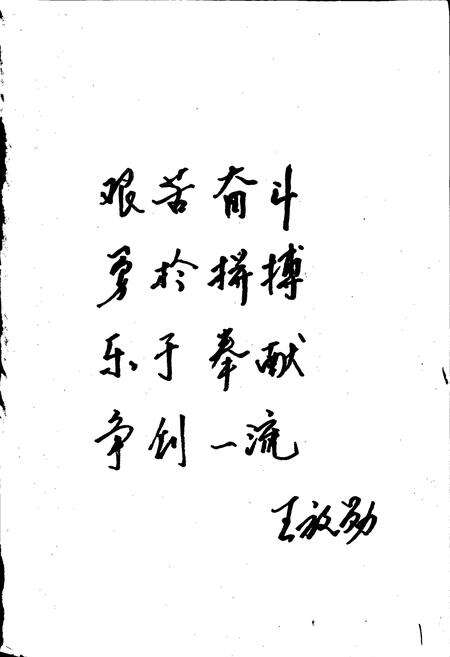 艰苦奋斗
勇於拼搏
乐于奉献
争创一流
王放勋